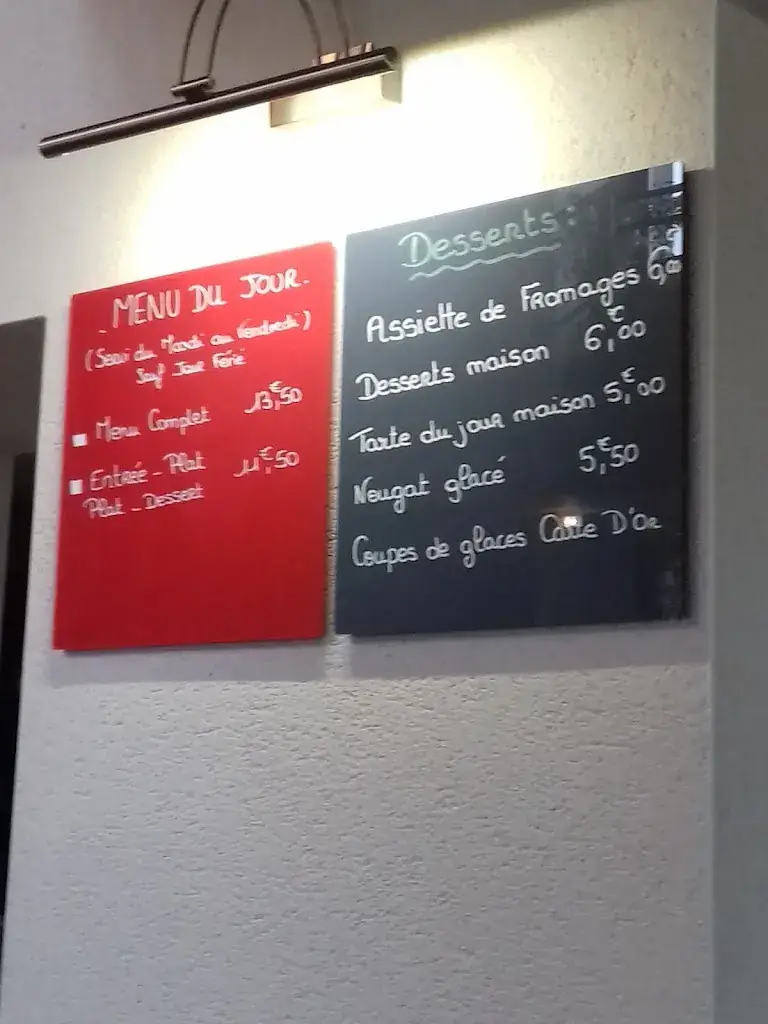 MENU DU JOUR.
(Servi du Mardi au Vendredi)
Sauf Jour Férié
Menu Complet 13,€50
Entrée - Plat 11,€50
Plat - Dessert
Desserts:
Assiette de Fromages 6,€00
Desserts maison 6,€00
Tarte du jour maison 5,€00
Nougat glacé 5,€50
Coupes de glaces Carte D'Or